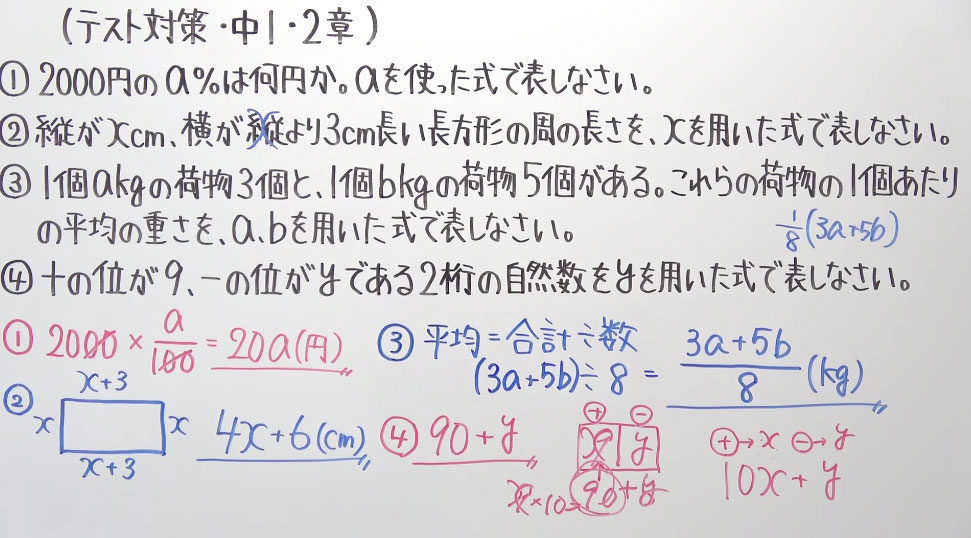 (テスト対策・中1・2章)
① 2000円のa%は何円か。aを使った式で表しなさい。
② 縦がxcm、横が縦より3cm長い長方形の周の長さを、xを用いた式で表しなさい。
③ 1個akgの荷物3個と、1個bkgの荷物5個がある。これらの荷物の1個あたり
の平均の重さを、a、bを用いた式で表しなさい。
1/8(3a+5b)
④ 十の位が9、一の位がyである2桁の自然数をyを用いた式で表しなさい。
① 2000×a/100=20a(円)
② x+3
x x
x+3
4x+6(cm)
③ 平均=合計÷数
(3a+5b)÷8=(3a+5b)/8(kg)
④ 90+y
⊕ ⊖
9 y
×10→90+y
⊕→x ⊖→y
10x+y